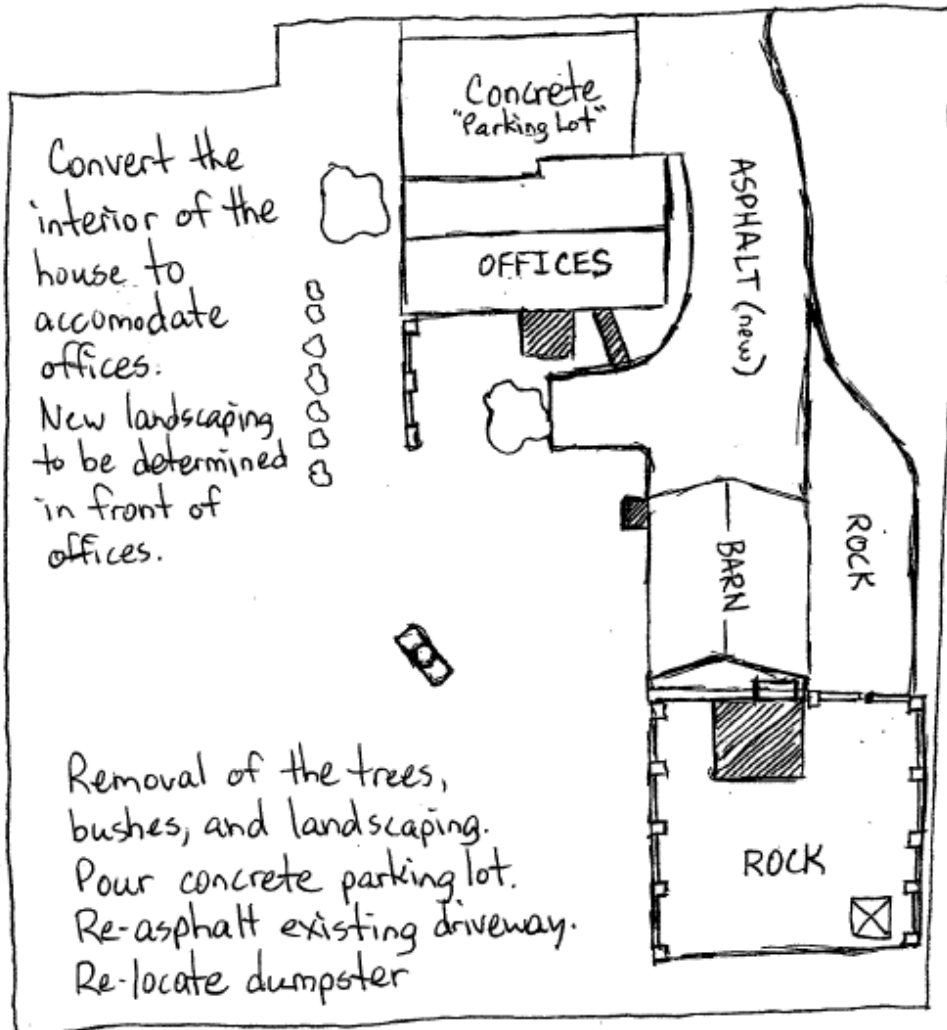 Concrete
"Parking Lot"
Convert the
interior of the
house to
accomodate
offices.
New landscaping
to be determined
in front of
offices.
OFFICES
ASPHALT (new)
BARN
ROCK
ROCK
Removal of the trees,
bushes, and landscaping.
Pour concrete parking lot.
Re-asphalt existing driveway.
Re-locate dumpster